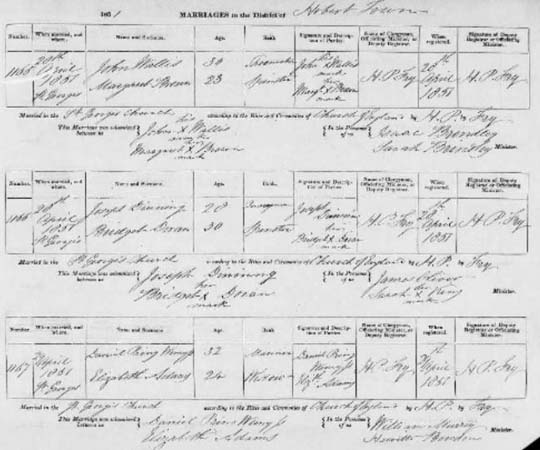 1851 MARRIAGES in the District of Hobart Town
Number. When married, and where. Name and Surname. Age. Rank. Signature and Description of Parties. Name of Clergyman, Officiating Minister, or Deputy Registrar. When registered. Signature of Registrar or Officiating Minister.
1165 28th April 1851 St Georges John Wallis 30 John Wallis his x mark H.P. Fry 28th April 1851 H.P. Fry
Margaret Brown 23 Spinster Margt x Brown her mark
Married in the St Georges Church according to the Rites and Ceremonies of Church of England by H.P. Fry
This Marriage was solemnized between us John x Wallis his mark In the Presence of us Isaac Brentley Minister.
Margaret x Brown her mark Sarah Brentley
Number. When married, and where. Name and Surname. Age. Rank. Signature and Description of Parties. Name of Clergyman, Officiating Minister, or Deputy Registrar. When registered. Signature of Registrar or Officiating Minister.
1166 28th April 1851 St Georges Joseph Dinning 28 Joseph Dinning H.P. Fry April 1851 H.P. Fry
Bridget Doran 30 Spinster Bridget x Doran her mark
Married in the St Georges Church according to the Rites and Ceremonies of Church of England by H.P. Fry
This Marriage was solemnized between us Joseph Dinning In the Presence of us James Oliver Minister.
Bridget x Doran her mark Sarah x King her mark
Number. When married, and where. Name and Surname. Age. Rank. Signature and Description of Parties. Name of Clergyman, Officiating Minister, or Deputy Registrar. When registered. Signature of Registrar or Officiating Minister.
1167 April 1851 St Georges Daniel 32 Mariner Daniel H.P. Fry April 1851 H.P. Fry
Elizabeth Adams 24 Widow Elizth Adams
Married in the St Georges Church according to the Rites and Ceremonies of Church of England by H.P. Fry
This Marriage was solemnized between us Daniel In the Presence of us William Murray Minister.
Elizabeth Adams